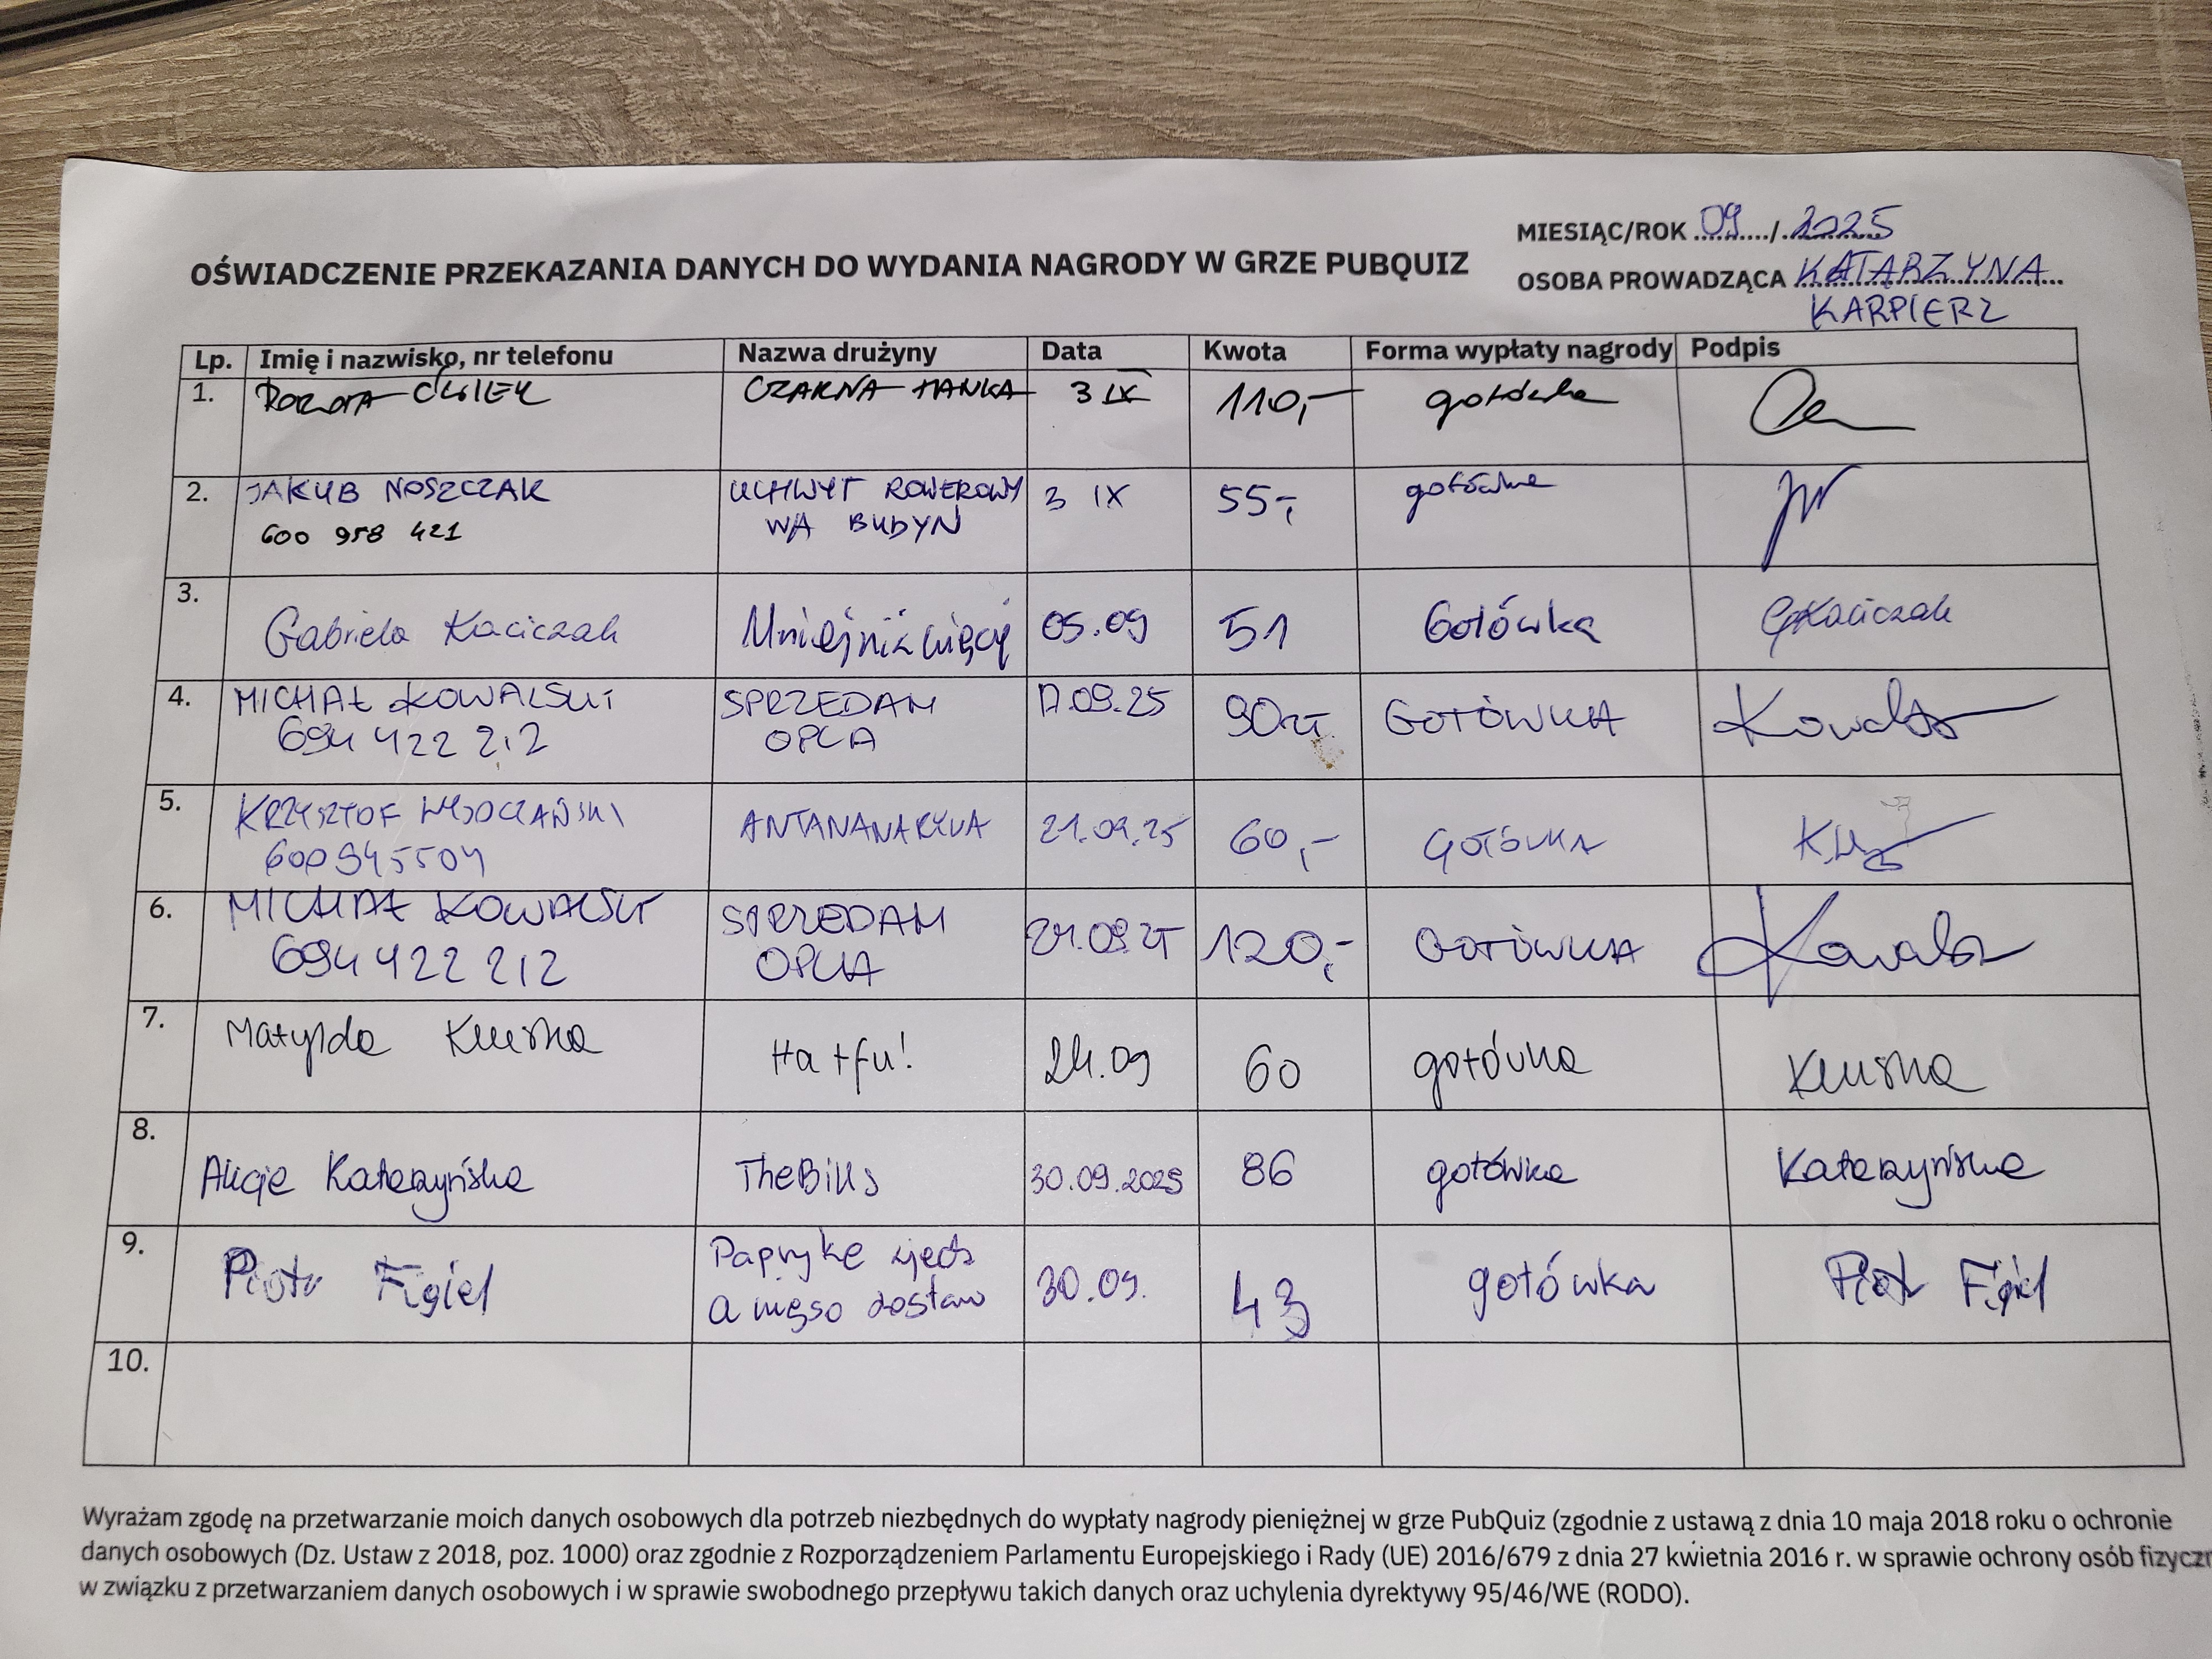 MIESIĄC/ROK 09 / 2025
OŚWIADCZENIE PRZEKAZANIA DANYCH DO WYDANIA NAGRODY W GRZE PUBQUIZ
OSOBA PROWADZĄCA KATARZYNA
KARPIERZ
Lp. Imię i nazwisko, nr telefonu Nazwa drużyny Data Kwota Forma wypłaty nagrody Podpis
1. CZARNA HANKA 3 IX 110,- gotówka
2. JAKUB NOSZCZAK UCHWYT ROWEROWY 3 IX 55,- gotówka
600 958 421 WA BUDYŃ
3. Gabriela Kaciczak Mniej niż więcej 05.09 51 Gotówka GKaciczak
4. MICHAŁ KOWALSKI SPRZEDAM 17.09.25 90zł GOTÓWKA
694 422 212 OPLA
5. KRZYSZTOF ANTANANARYWA 60,- GOTÓWKA
600945504
6. MICHAŁ KOWALSKI SPRZEDAM 24.09.25 120,- GOTÓWKA
694 422 212 OPLA
7. Matylda Ha tfu! 24.09 60 gotówka
8. Alicja Katarzyńska TheBills 30.09.2025 86 gotówka Katarzyńska
9. Piotr Figiel Paprykę zjedz 30.09. 43 gotówka Piotr Figiel
a mięso zostaw
10.
Wyrażam zgodę na przetwarzanie moich danych osobowych dla potrzeb niezbędnych do wypłaty nagrody pieniężnej w grze PubQuiz (zgodnie z ustawą z dnia 10 maja 2018 roku o ochronie
danych osobowych (Dz. Ustaw z 2018, poz. 1000) oraz zgodnie z Rozporządzeniem Parlamentu Europejskiego i Rady (UE) 2016/679 z dnia 27 kwietnia 2016 r. w sprawie ochrony osób fizyczn
w związku z przetwarzaniem danych osobowych i w sprawie swobodnego przepływu takich danych oraz uchylenia dyrektywy 95/46/WE (RODO).